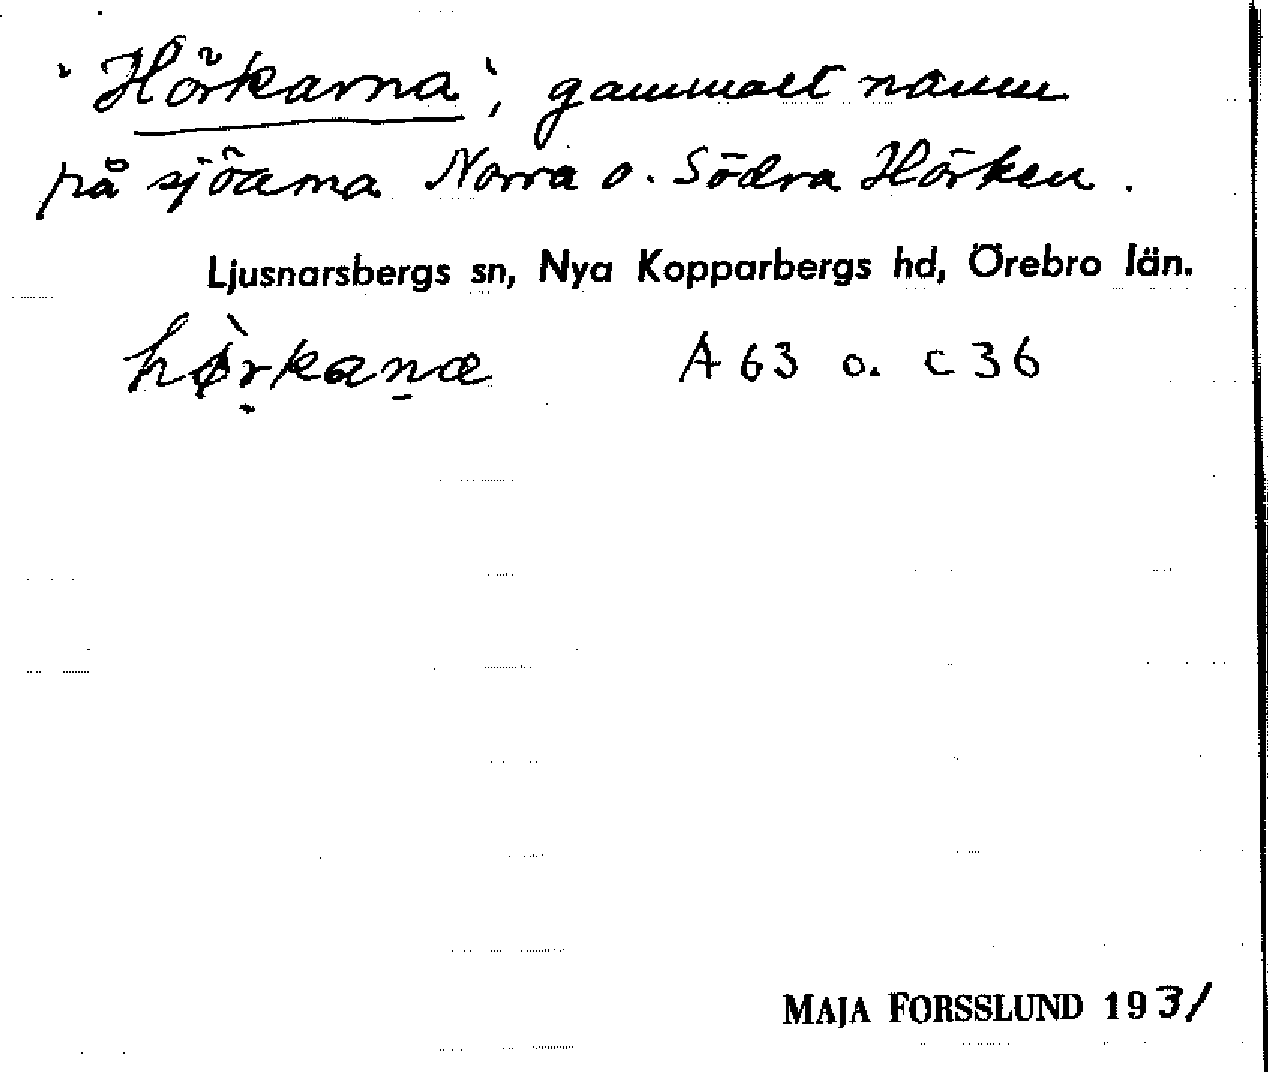 'Hörkarna', gammalt namn
på sjöarna Norra o. Södra Hörken.
Ljusnarsbergs sn, Nya Kopparbergs hd, Örebro län.
hø̀rkanæ A 63 o. c 36
MAJA FORSSLUND 1931